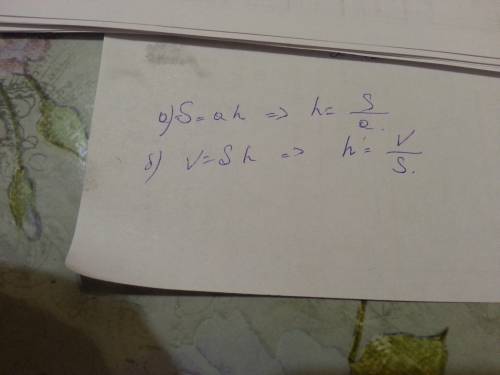 а) S = a h => h = S/a.
б) V = S h => h = V/S.